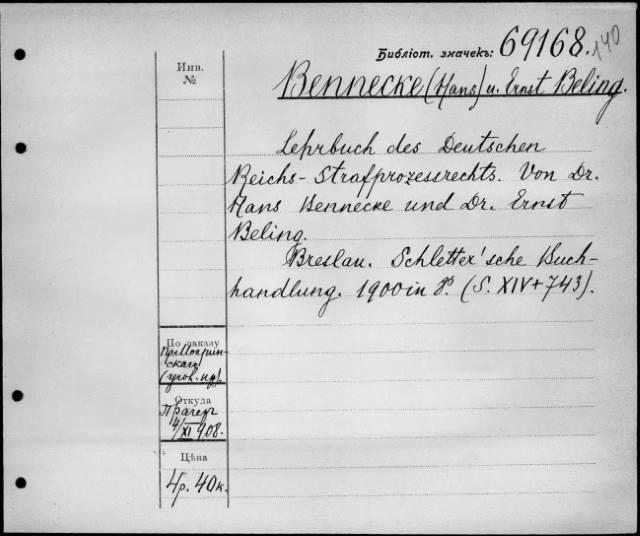 Библіот. значекъ: 69168. 140
Bennecke (Hans) u. Ernst Beling.
Инв.
№
Lehrbuch des Deutschen
Reichs-Strafprozessrechts. Von Dr.
Hans Bennecke und Dr. Ernst
Beling.
Breslau. Schletter'sche Buch-
handlung. 1900 in 8º. (S. XIV + 743).
По заказу
скаго
(угол. пр.).
Откуда
Прагеръ
4/XI 908.
Цѣна
4р. 40к.